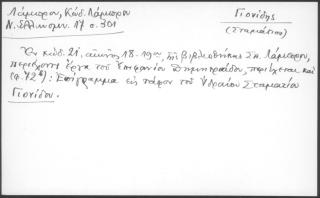 Λάμπρου, Κώδ. Λάμπρου
Ν. Ἑλληνομν. 17 σ. 301
Γιονίδης
(Σταμάτιος)
Ἐν κώδ. 21, αἰῶνος 18-19ου, τῆς βιβλιοθήκης Σπ. Λάμπρου,
περιέχοντι ἔργα τοῦ Ἐπιφανίου Δημητριάδου, περιέχεται καὶ
(φ. 72α): Ἐπίγραμμα εἰς τάφον τοῦ Ὑδραίου Σταματίου
Γιονίδου.